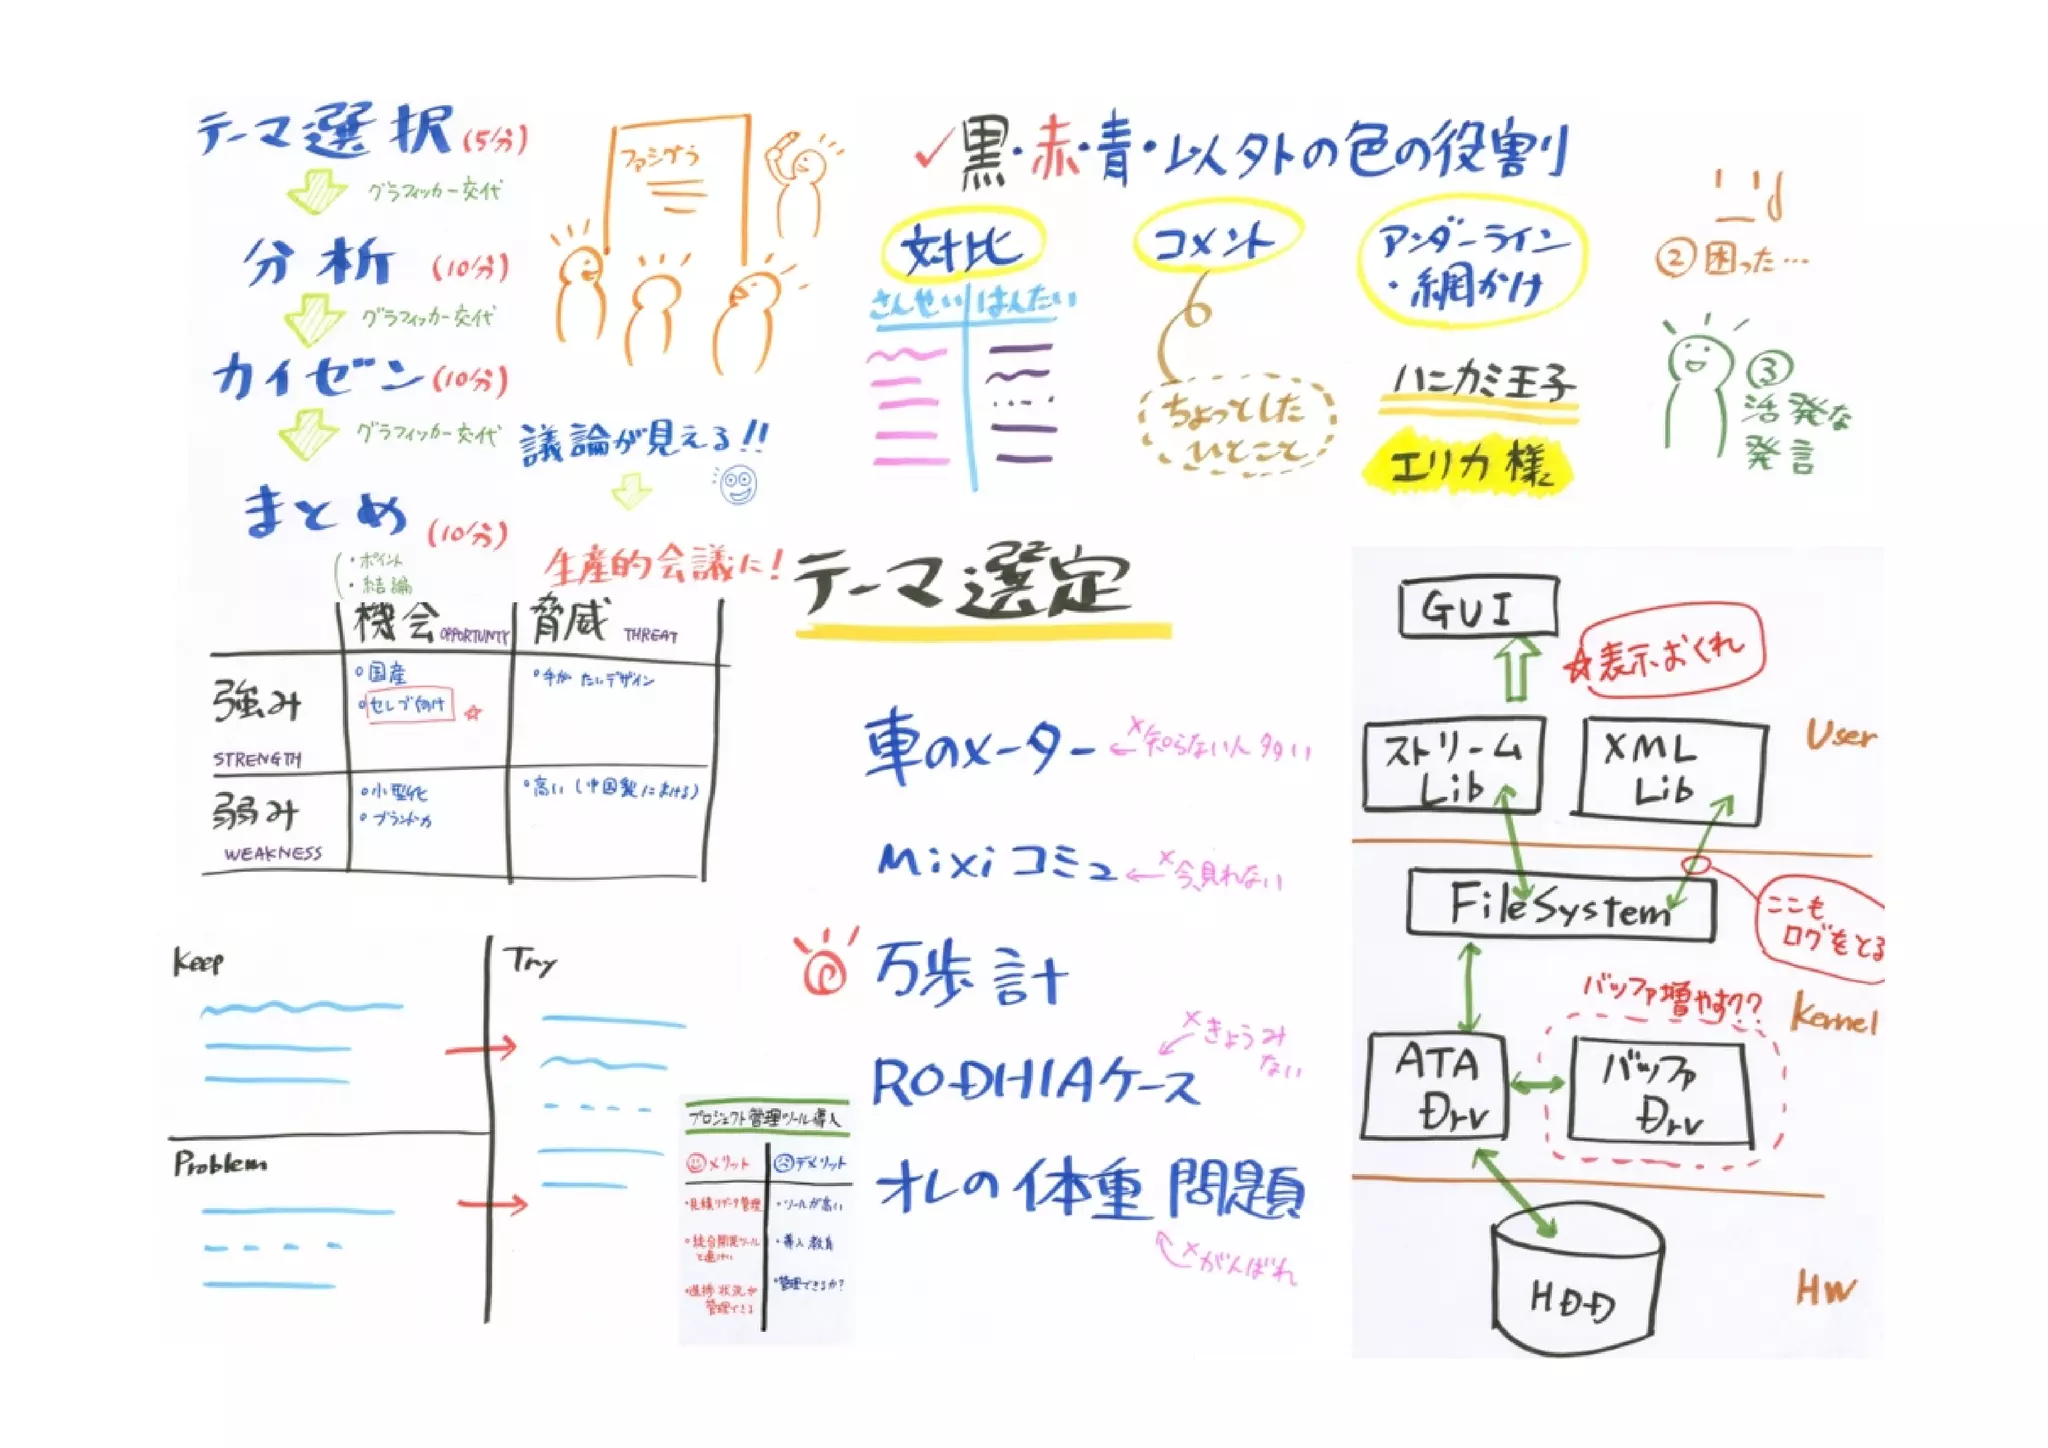 テーマ選択(5分)
グラフィッカー交代
分析(10分)
グラフィッカー交代
カイゼン(10分)
グラフィッカー交代
まとめ(10分)
・ポイント
・結論
ファシグラ
議論が見える!!
生産的会議に!
✓黒・赤・青・以外の色の役割
対比
さんせい はんたい
コメント
ちょっとした
ひとこと
アンダーライン
・網かけ
ハニカミ王子
エリカ様
②困った…
③
活発な
発言
機会 OPPORTUNTY 脅威 THREAT
強み
STRENGTH
・国産
・セレブ向け☆
・手がたいデザイン
弱み
WEAKNESS
・小型化
・ブランド力
・高い(中国製における)
テーマ選定
車のメーター
×知らない人多い
Mixiコミュ
×今見れない
万歩計
RODHIAケース
×きょうみ
ない
オレの体重問題
×がんばれ
Keep
Problem
Try
プロジェクト管理ツール導入
メリット デメリット
・見積りデータ管理
・統合開発ツール
と連けい
・進捗状況が
管理できる
・ツールが高い
・導入教育
・管理できるか?
GUI
☆表示おくれ
ストリーム
Lib
XML
Lib
User
FileSystem
ここも
ログをとる
Kernel
バッファ増やす??
ATA
Drv
バッファ
Drv
HDD
HW